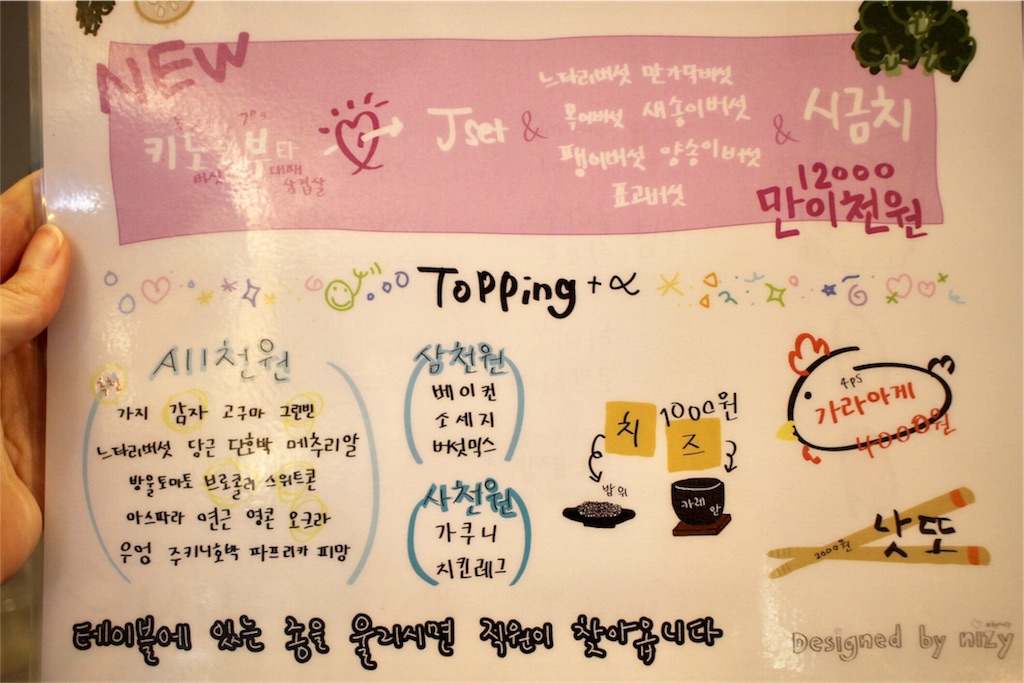 NEW
키노 부타
버섯 대패
삼겹살
Jset &
느타리버섯 만가닥버섯
목이버섯 새송이버섯
팽이버섯 양송이버섯
표고버섯
& 시금치
12000
만이천원
Topping +α
All천원
추천
가지 감자 고구마 그린빈
느타리버섯 당근 단호박 메추리알
방울토마토 브로콜리 스위트콘
아스파라 연근 영콘 오크라
우엉 주키니호박 파프리카 피망
삼천원
베이컨
소세지
버섯믹스
사천원
가쿠니
치킨레그
치즈 1000원
밥위
카레안
4PS
가라아게
4000원
낫또
2000원
테이블에 있는 종을 울리시면 직원이 찾아옵니다
Designed by nizy